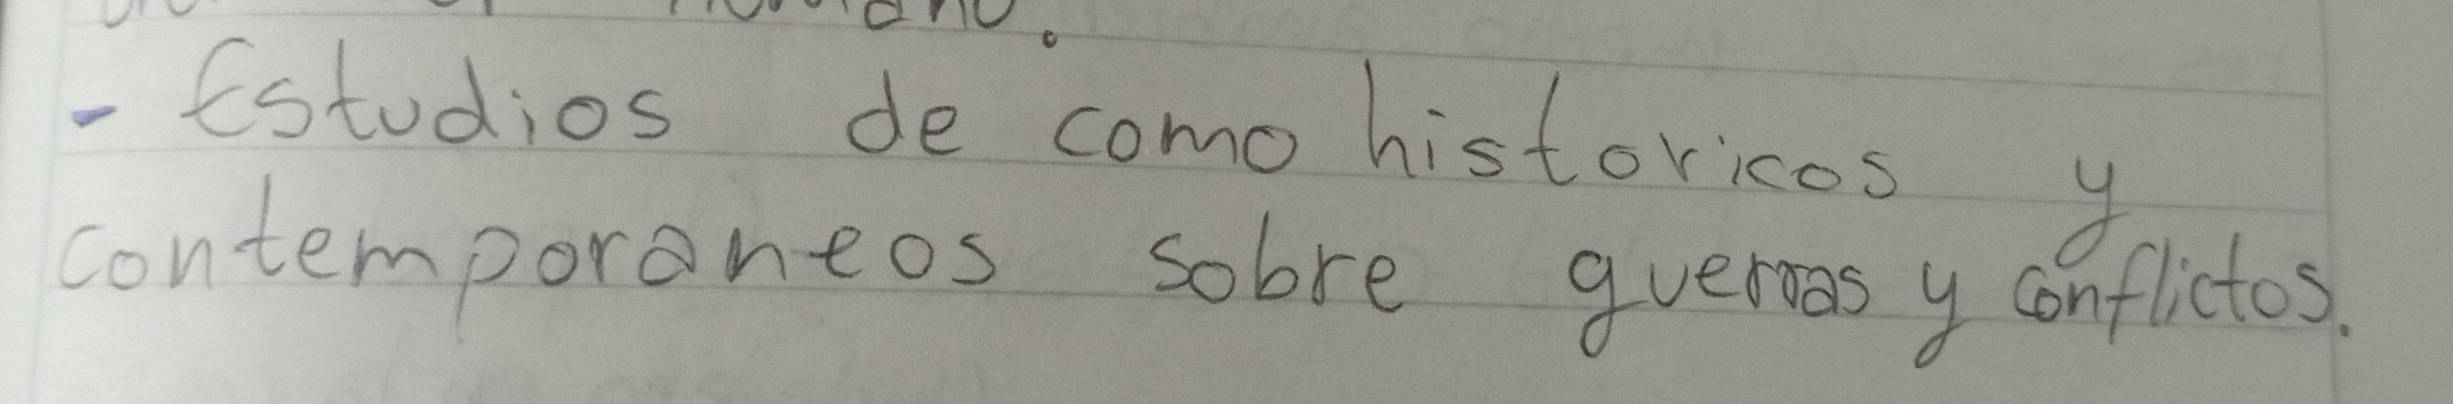 humano.
- Estudios de como historicos y
contemporaneos sobre guerras y conflictos.